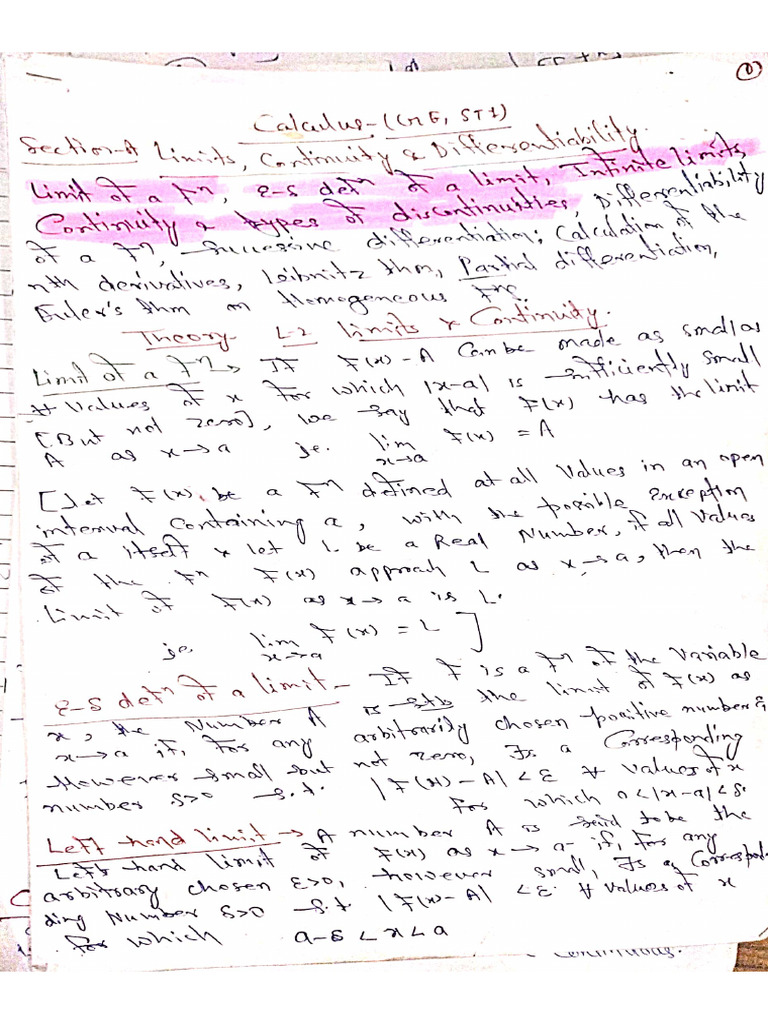 ①
Calculus - (GE, ST1)
Section-A Limits, Continuity & Differentiability.
Limit of a Fⁿ, ε-δ defⁿ of a limit, Infinite limits,
Continuity & types of discontinuities, Differentiability
of a Fⁿ, Successive differentiation; Calculation of the
nth derivatives, Leibnitz thm, Partial differentiation,
Euler's thm on Homogeneous Fⁿs.
Theory L-2 Limits & Continuity.
Limit of a Fⁿ → If F(x) - A can be made as small as
∀ values of x for which |x-a| is sufficiently small
[But not zero], we say that F(x) has the limit
A as x→a ie. lim x→a F(x) = A
[Let F(x) be a Fⁿ defined at all values in an open
interval containing a, with the possible exception
of a itself & let L be a Real Number, if all values
of the Fⁿ F(x) approach L as x→a, then the
limit of F(x) as x→a is L.
ie. lim x→a F(x) = L ]
ε-δ defⁿ of a limit - If F is a Fⁿ of the variable
x, the number A is stb the limit of F(x) as
x→a if, for any arbitrarily chosen positive number ε,
However small but not zero, ∃s a Corresponding
number δ>0 s.t. |F(x)-A|<ε ∀ values of x
for which 0<|x-a|<δ.
Left hand limit → A number A is said to be the
Left hand limit of F(x) as x→a- if, for any
arbitrary chosen ε>0, however small, ∃s a Correspon
ding number δ>0 s.t |F(x)-A| <ε. ∀ values of x
for which a-δ<x<a